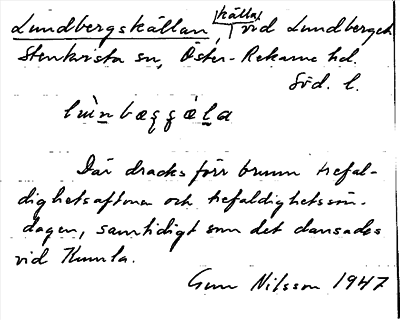 Lundbergskällan, källa vid Lundberget
Stenkvista sn, Öster-Rekarne hd.
Söd. l.
Där dracks förr brunn trefal-
dighetsafton och trefaldighetssön-
dagen, samtidigt som det dansades
vid Kumla.
Gun Nilsson 1947